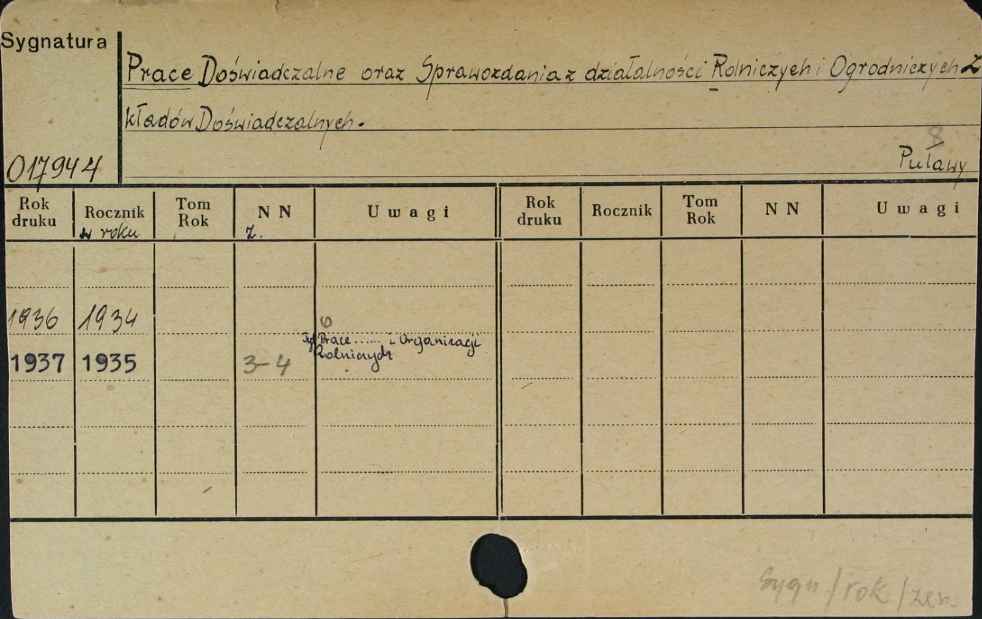 Sygnatura
Prace Doświadczalne oraz Sprawozdania z działalności Rolniczych i Ogrodniczych Z
kładów Doświadczalnych.
8
017944 Puławy
Rok druku Rocznik w roku Tom Rok NN z. Uwagi Rok druku Rocznik Tom Rok NN Uwagi
1936 1934
Prace ...... i Organizacji
1937 1935 3-4 Rolniczych
Sygn / rok / zesz